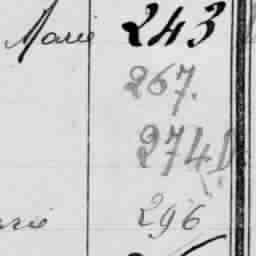 Marie 243
267.
274
296